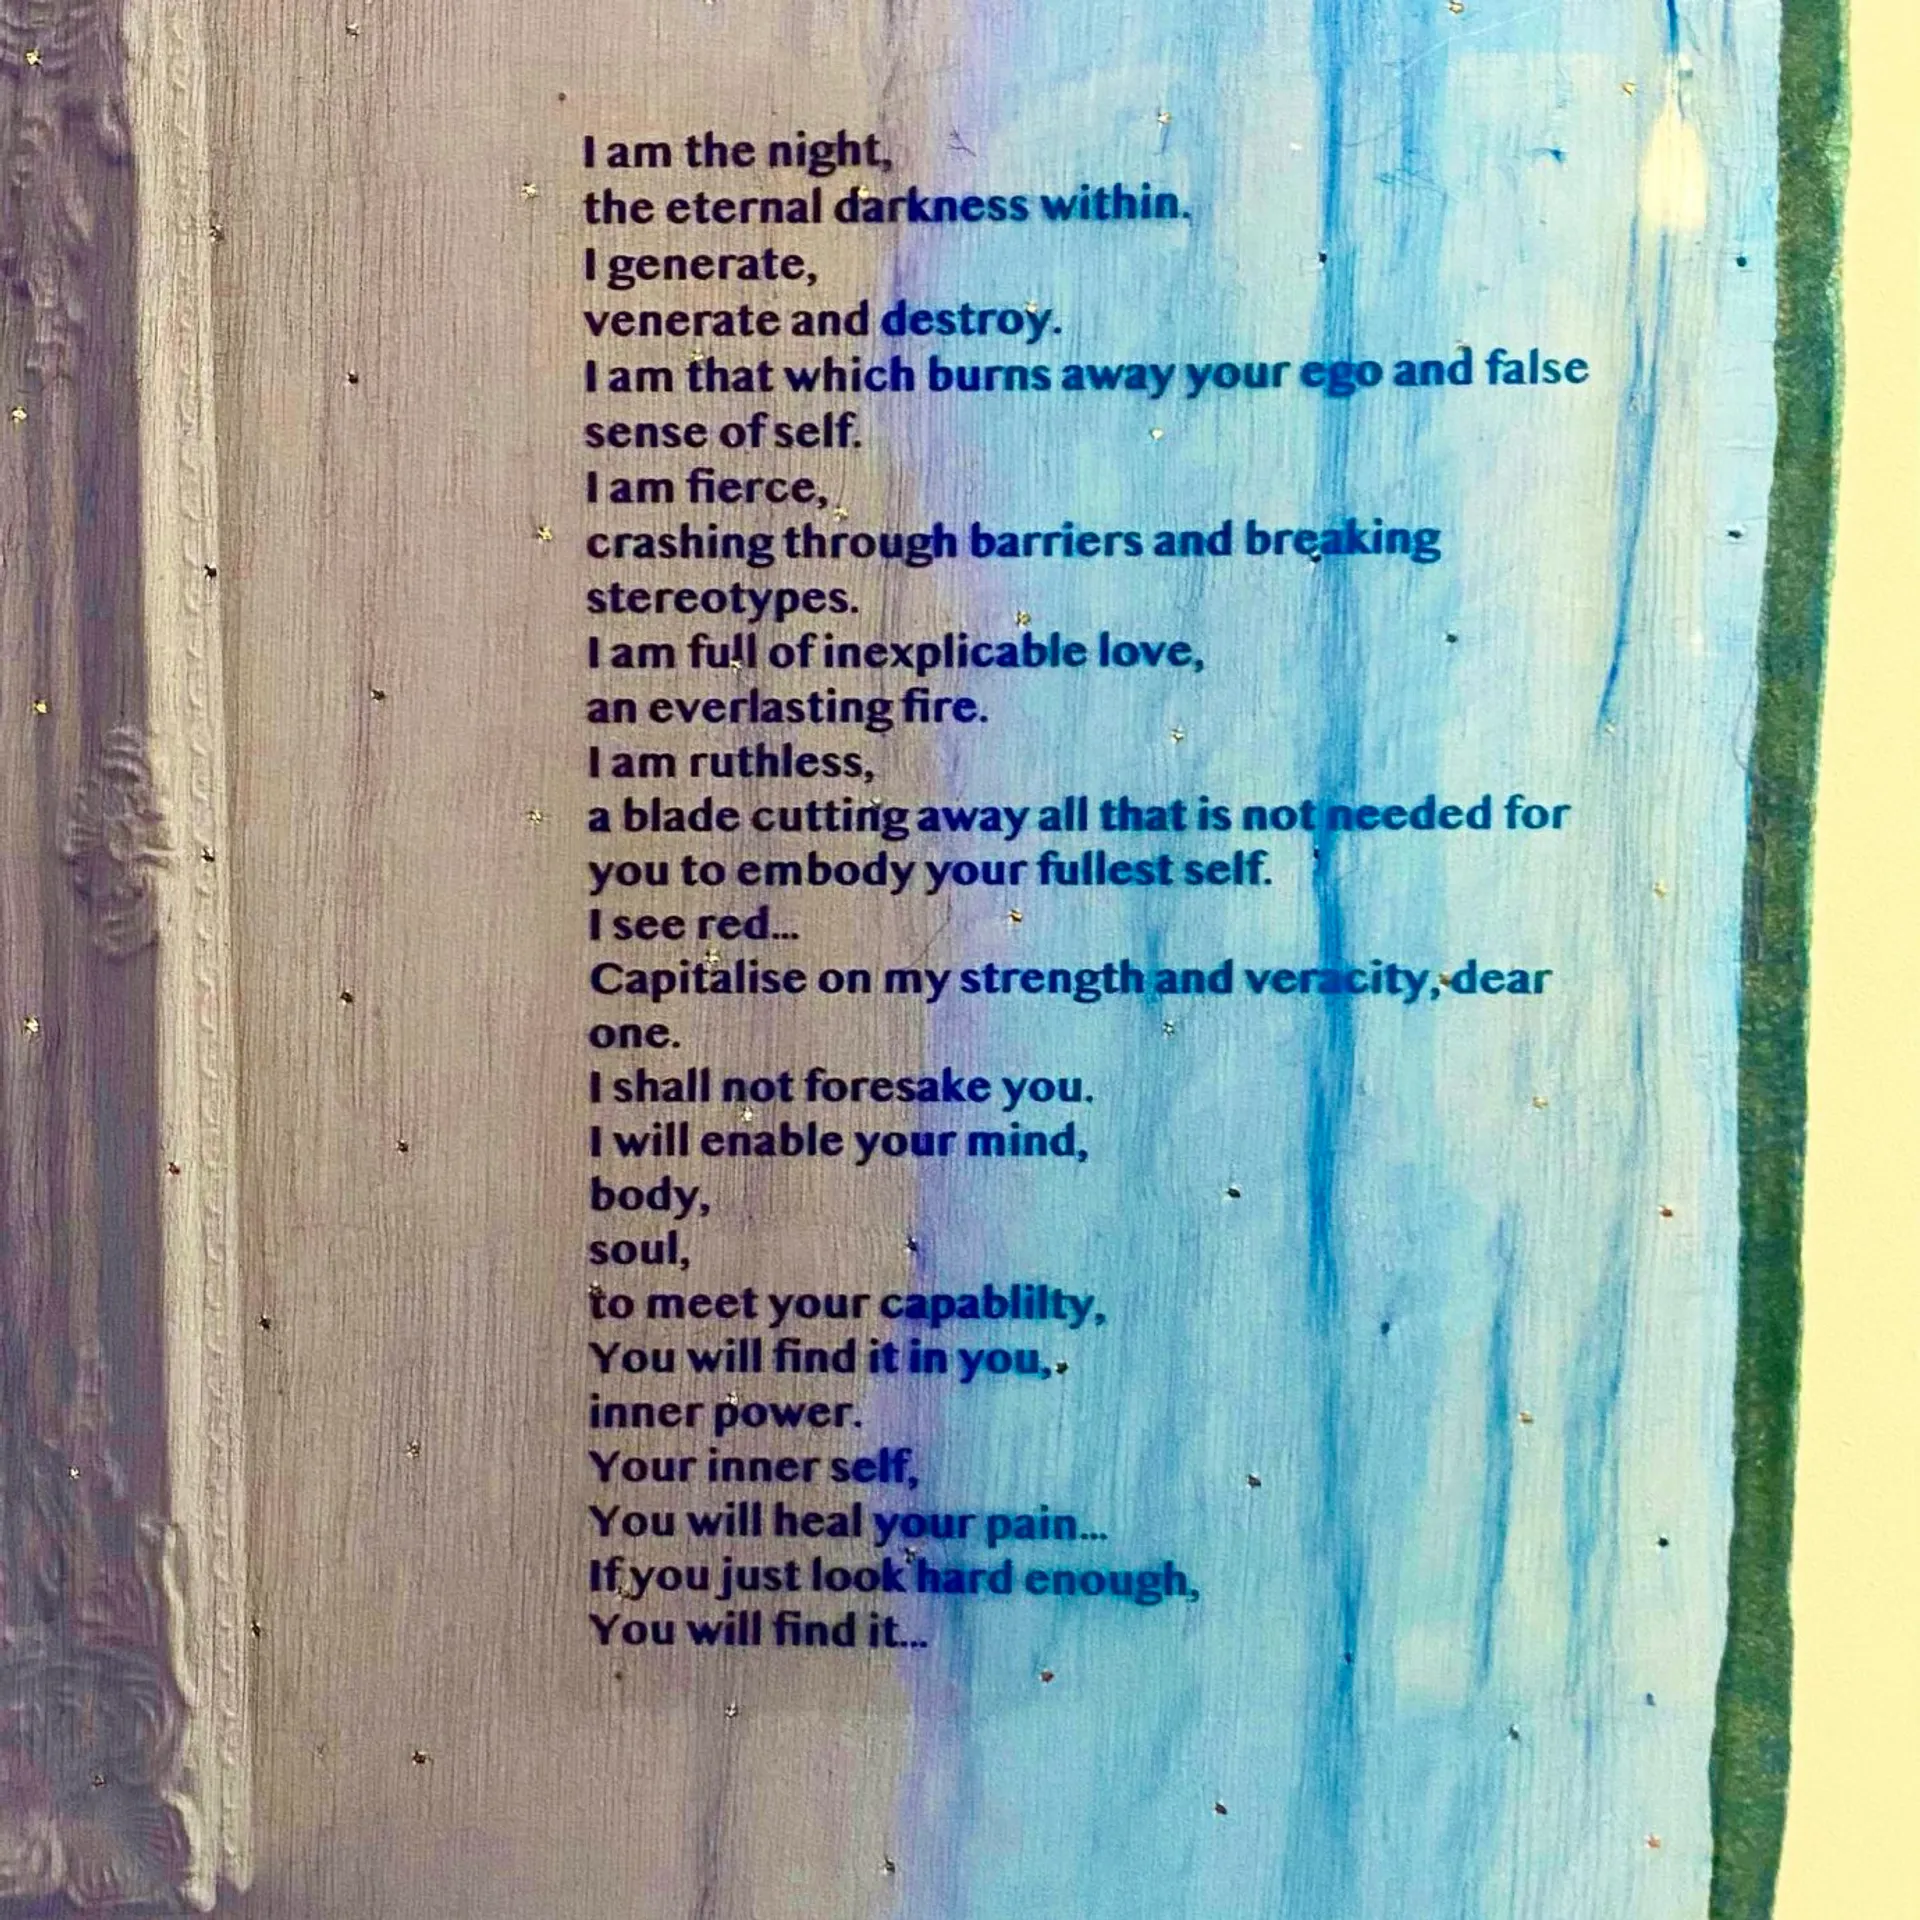 I am the night,
the eternal darkness within.
I generate,
venerate and destroy.
I am that which burns away your ego and false
sense of self.
I am fierce,
crashing through barriers and breaking
stereotypes.
I am full of inexplicable love,
an everlasting fire.
I am ruthless,
a blade cutting away all that is not needed for
you to embody your fullest self.
I see red...
Capitalise on my strength and veracity, dear
one.
I shall not foresake you.
I will enable your mind,
body,
soul,
to meet your capablilty,
You will find it in you,
inner power.
Your inner self,
You will heal your pain...
If you just look hard enough,
You will find it...